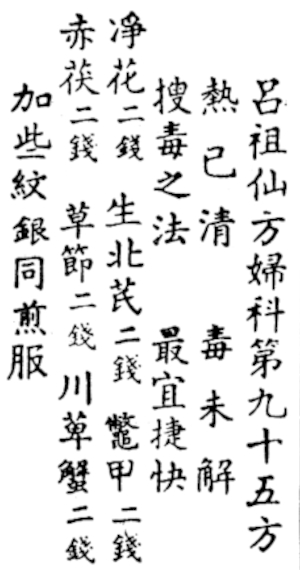 呂祖仙方婦科第九十五方
熱已清 毒未解
搜毒之法 最宜捷快
淨花二錢 生北芪二錢 鼈甲二錢
赤茯二錢 草節二錢 川萆蟹二錢
加些紋銀同煎服